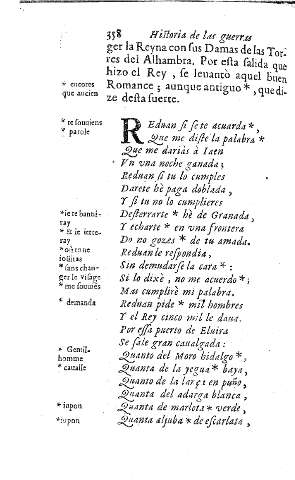 358 Historia de las guerras
ger la Reyna con sus Damas de las Tor-
res del Alhambra. Por esta salida que
hizo el Rey, se leuantò aquel buen
* encores
que ancien
Romance; aunque antiguo *, que di-
ze desta suerte.
* te souujens
* parole
REduan si se te acuerda *,
Que me diste la palabra *
Que me darias à Iaen
Vn una noche ganada;
Reduan si tu lo cumples
Darete hè paga doblada,
Y si tu no lo cumplieres
* ie te banni-
ray
Desterrarte * hè de Granada,
* Et ie iette-
ray
Y echarte * en una frontera
Do no gozes * de tu amada.
Reduan le respondia,
* sans chan-
ger le visage
Sin demudarse la cara *:
* me souuẽs
Si lo dixè, no me acuerdo *;
Mas cumplirè mi palabra.
* demanda
Reduan pide * mil hombres
Y el Rey cinco mil le daua.
Por essa puerto de Eluira
Se sale gran caualgada:
* Gentil-
homme
Quanto del Moro hidalgo *,
* caualle
Quanto de la yegua * baya,
Quanto de la lança en puño,
Quanto del adarga blanca,
* iupon
Quanta de marlota * verde,
* iupon
Quanta aljuba * de escarlata,